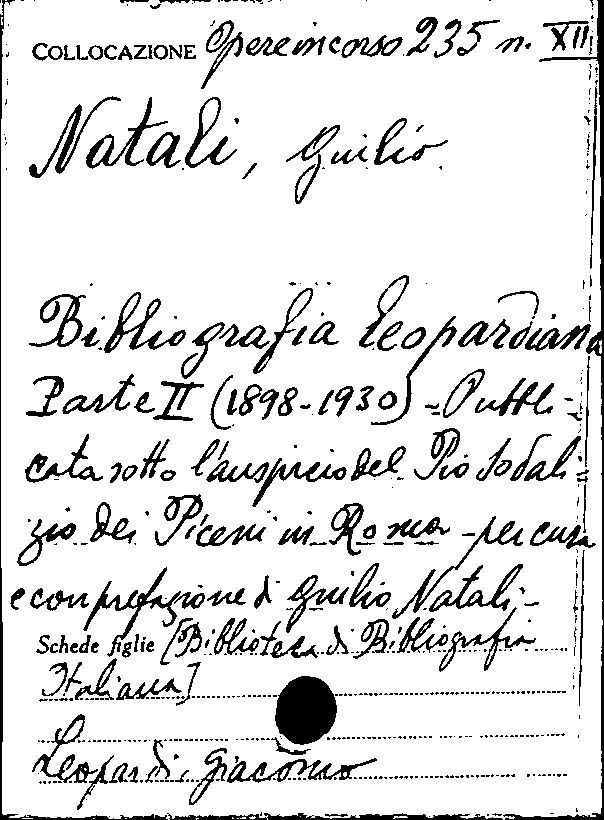 COLLOCAZIONE Opere in corso 235 n. XII
Natali, Giulio
Bibliografia leopardiana
Parte II (1898-1930) - Pubbli-
cata sotto l'auspicio del Pio Sodali=
zio dei Piceni in Roma - per cura
e con prefazione di Giulio Natali;-
Schede figlie [Biblioteca di Bibliografia
Italiana]
Leopardi, Giacomo